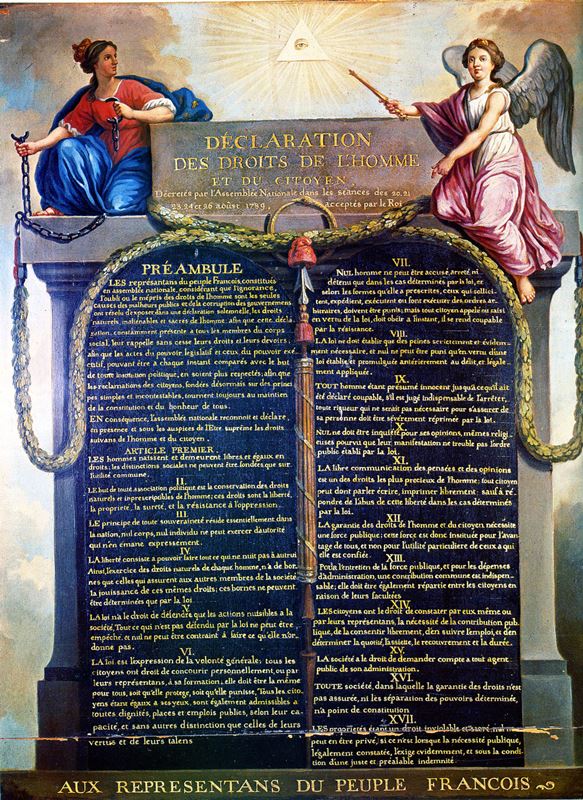 DÉCLARATION
DES DROITS DE L'HOMME
ET DU CITOYEN,
Décretés par l'Assemblée Nationale dans les séances des 20, 21
23, 24 et 26 août 1789, acceptés par le Roi
PRÉAMBULE
LES représentans du peuple François, constitués
en assemblée nationale, considérant que l'ignorance,
l'oubli ou le mépris des droits de l'homme sont les seules
causes des malheurs publics et de la corruption des gouvernemens
ont résolu d'exposer dans une déclaration solemnelle, les droits
naturels, inaliénables et sacrés de l'homme; afin que cette décla
ration, constamment présente à tous les membres du corps
social, leur rappelle sans cesse leurs droits et leurs devoirs;
afin que les actes du pouvoir législatif et ceux du pouvoir exé
cutif, pouvant être à chaque instant comparés avec le but
de toute institution politique, en soient plus respectés; afin que
les reclamations des citoyens, fondées désormais sur des princi
pes simples et incontestables, tournent toujours au maintien
de la constitution et du bonheur de tous.
EN conséquence, l'assemblée nationale reconnoit et déclare,
en présence et sous les auspices de l'Etre suprême les droits
suivans de l'homme et du citoyen.
ARTICLE PREMIER.
LES hommes naissent et demeurent libres et égaux en
droits; les distinctions sociales ne peuvent être fondées que sur
l'utilité commune.
II.
LE but de toute association politique est la conservation des droits
naturels et imprescriptibles de l'homme; ces droits sont la liberté,
la propriété, la sureté, et la résistance à l'oppression.
III.
LE principe de toute souveraineté réside essentiellement dans
la nation, nul corps, nul individu ne peut exercer d'autorité
qui n'en émane expressement.
IV.
LA liberté consiste à pouvoir faire tout ce qui ne nuit pas à autrui
Ainsi, l'exercice des droits naturels de chaque homme, n'a de bor-
nes que celles qui assurent aux autres membres de la société
la jouissance de ces mêmes droits; ces bornes ne peuvent
être déterminées que par la loi
V.
LA loi n'a le droit de défendre que les actions nuisibles à la
société. Tout ce qui n'est pas défendu par la loi ne peut être
empêché, et nul ne peut être contraint à faire ce qu'elle n'or-
donne pas.
VI.
LA loi est l'expression de la volonté générale; tous les
citoyens ont droit de concourir personnellement, ou par
leurs représentans, à sa formation; elle doit être la même
pour tous, soit qu'elle protege, soit qu'elle punisse. Tous les cito
yens étant égaux à ses yeux, sont également admissibles à
toutes dignités, places et emplois publics, selon leur ca
pacité, et sans autres distinction que celles de leurs
vertus et de leurs talens
VII.
NUL homme ne peut être accusé, arreté ni
détenu que dans les cas déterminés par la loi, et
selon les formes qu'elle a prescrites, ceux qui sollici-
tent, expédient, exécutent ou font exécuter des ordres ar-
bitraires, doivent être punis; mais tout citoyen appelé ou saisi
en vertu de la loi, doit obéir à l'instant, il se rend coupable
par la résistance.
VIII.
LA loi ne doit établir que des peines strictement et évidem-
ment nécessaire, et nul ne peut être puni qu'en vertu d'une
loi établie, et promulguée antérierement au délit, et légale
ment appliquée.
IX.
TOUT homme étant présumé innocent jusqu'à ce qu'il ait
été déclaré coupable, s'il est jugé indispensable de l'arrêter,
toute rigueur qui ne serait pas nécessaire pour s'assurer de
sa personne doit être sévèrement réprimée par la loi.
X.
NUL ne doit être inquiété pour ses opinions, mêmes religi
euses pourvu que leur manifestation ne trouble pas l'ordre
public établi par la loi.
XI.
LA libre communication des pensées et des opinions
est un des droits les plus precieux de l'homme; tout citoyen
peut donc parler écrire, imprimer librement: sauf à ré
pondre de l'abus de cette liberté dans les cas déterminés
par la loi.
XII.
LA garantie des droits de l'homme et du citoyen nécessite
une force publique; cette force est donc instituée pour l'avan
tage de tous, et non pour l'utilité particuliere de ceux a qui
elle est confiée.
XIII.
POUR l'entretien de la force publique, et pour les dépenses
d'administration, une contribution commune est indispen-
sable; elle doit être également répartie entre les citoyens en
raison de leurs facultées
XIV.
LES citoyens ont le droit de constater par eux même ou
par leurs représentans, la nécessité de la contribution pub
lique, de la consentir librement, d'en suivre l'emploi, et d'en
déterminer la quotité, l'assiette, le recouvrement et la durée.
XV.
LA société a le droit de demander compte a tout agent
public de son administration.
XVI.
TOUTE société, dans laquelle la garantie des droits n'est
pas assurée, ni les séparation des pouvoirs déterminée,
n'a point de constitution
XVII.
LES propriétés étant un droit inviolable et sacré, nul ne
peut en être privé, si ce n'est lorsque la nécessité publique,
légalement constatée, l'exige evidemment, et sous la condi
tion d'une juste et préalable indemnité.
AUX REPRESENTANS DU PEUPLE FRANCOIS